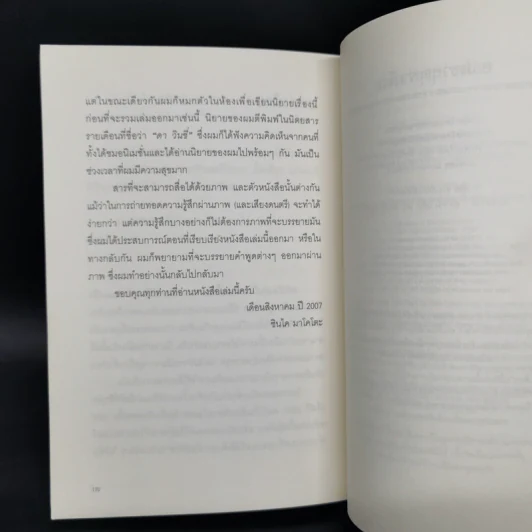 แต่ในขณะเดียวกันผมก็หมกตัวในห้องเพื่อเขียนนิยายเรื่องนี้
ก่อนที่จะรวมเล่มออกมาเช่นนี้ นิยายของผมตีพิมพ์ในนิตยสาร
รายเดือนที่ชื่อว่า "ดา วินชี" ซึ่งผมก็ได้ฟังความคิดเห็นจากคนที่
ทั้งได้ชมอนิเมชั่นและได้อ่านนิยายของผมไปพร้อมๆ กัน มันเป็น
ช่วงเวลาที่ผมมีความสุขมาก
สารที่จะสามารถสื่อได้ด้วยภาพ และตัวหนังสือนั้นต่างกัน
แม้ว่าในการถ่ายทอดความรู้สึกผ่านภาพ (และเสียงดนตรี) จะทำได้
ง่ายกว่า แต่ความรู้สึกบางอย่างก็ไม่ต้องการภาพที่จะบรรยายมัน
ซึ่งผมได้ประสบการณ์ตอนที่เรียบเรียงหนังสือเล่มนี้ออกมา หรือใน
ทางกลับกัน ผมก็พยายามที่จะบรรยายคำพูดต่างๆ ออกมาผ่าน
ภาพ ซึ่งผมทำอย่างนั้นกลับไปกลับมา
ขอบคุณทุกท่านที่อ่านหนังสือเล่มนี้ครับ
เดือนสิงหาคม ปี 2007
ชินไค มาโคโตะ